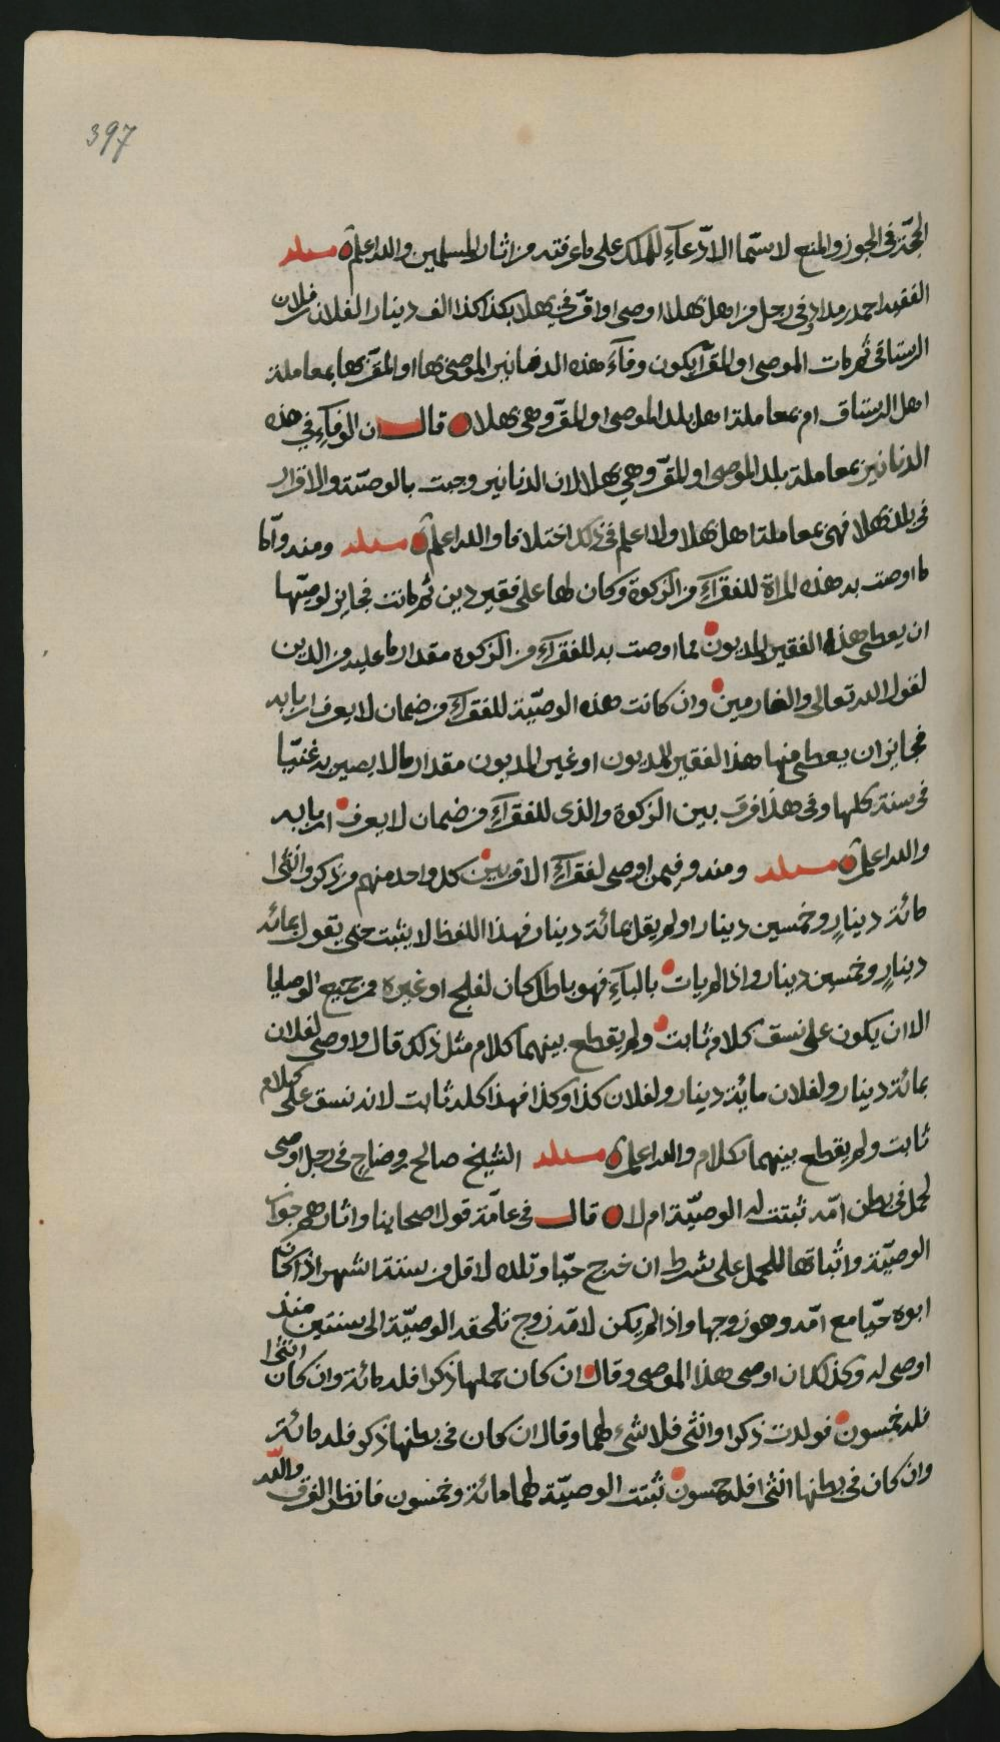 397
الحجّة في الجوز والمنع لا سيّما الادّعاء للملك على ما عرفته من اثار المسلمين والله اعلم مسئلة
الفقيه احمد بن مداد في رجل من اهل بهلا اوصى او اقرّ في بهلا بكذا كذا الف دينار لفلان بن فلان
الرستاقي ثم مات الموصي او المقرّ ايكون وفاء هذه الدنانير الموصى بها او المقرّ بها بمعاملة
اهل الرستاق ام بمعاملة اهل بلد الموصي او المقرّ وهي بهلا قال ان الوفاء في هذه
الدنانير بمعاملة بلد الموصي او المقرّ وهي بهلا لان الدنانير وجبت بالوصيّة والاقرار
في بلد بهلا فهي بمعاملة اهل بهلا ولا اعلم في ذلك اختلافا والله اعلم مسئلة ومنه وامّا
ما اوصت به هذه المراة للفقراء من الزكوة وكان لها على فقير دين ثم ماتت فجايز لوصيّها
ان يعطي هذا الفقير المديون مما اوصت به للفقراء من الزكوة مقدار ما عليه من الدين
لقول الله تعالى والغارمين وان كانت هذه الوصيّة للفقراء من ضمان لا يعرف اربابه
فجايز ان يعطى منها هذا الفقير المديون او غير المديون مقدار ما لا يصير به غنيّا
في سنة كلها وفي هذا فرق بين الزكوة والذي للفقراء من ضمان لا يعرف اربابه
والله اعلم مسئلة ومنه وفيمن اوصى لفقراء الاقربين كل واحد منهم من ذكر وانثى
مائة دينارٍ وخمسين دينارا ولم يقل بمائة دينار فهذا اللفظ لا يثبت حتى يقول بمائه
دينارٍ وخمسين دينار واذا لم يات بالباء فهو باطل كان لفلج او غيره من جميع الوصايا
الا ان يكون على نسق كلام ثابت ولم يقطع بينهما كلام مثل ذلك قال واوصى لفلان
بمائة دينار ولفلان مائة دينار ولفلان كذا وكذا فهذا كله ثابت لانه نسق على كلام
ثابت ولم يقطع بينهما كلام والله اعلم مسئلة الشيخ صالح بن وضاح في رجل اوصى
لحمل في بطن امّه ثبتت له الوصيّة ام لا قال في عامّة قول اصحابنا واثارهم جواز
الوصيّة واثباتها للحمل على شرط ان خرج حيّا وتلده لاقل من ستة اشهر اذا كان
ابوه حيّا مع امّه وهو زوجها واذا لم يكن لامّه زوج تلحقه الوصيّة الى سنتين منذ
اوصى له وكذلك ان اوصى هذا الموصي وقال ان كان حملها ذكرا فله مائة وان كان انثى
فله خمسون فولدت ذكرا وانثى فلا شيء لهما وقال ان كان في بطنها ذكر فله مائة
وان كان في بطنها انثى فله خمسون ثبتت الوصيّة لهما مائة وخمسون فانظر الفرق والله